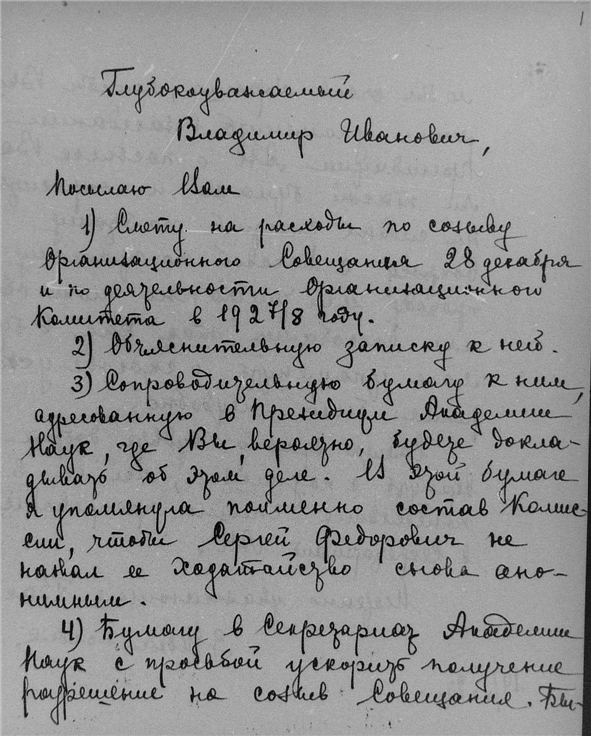 1
Глубокоуважаемый
Владимир Иванович,
Посылаю Вам
1) Смету на расходы по созыву
Организационного Совещания 28 декабря
и по деятельности Организационного
Комитета в 1927/8 году.
2) Объяснительную записку к ней.
3) Сопроводительную бумагу к ним,
адресованную в Президиум Академии
Наук, где Вы, вероятно, будете докла-
дывать об этом деле. В этой бумаге
я упомянула поименно состав Комис-
сии, чтобы Сергей Федорович не
назвал ее ходатайство снова ано-
нимным.
4) Бумагу в Секретариат Академии
Наук с просьбой ускорить получение
разрешение на созыв Совещания. Бы-